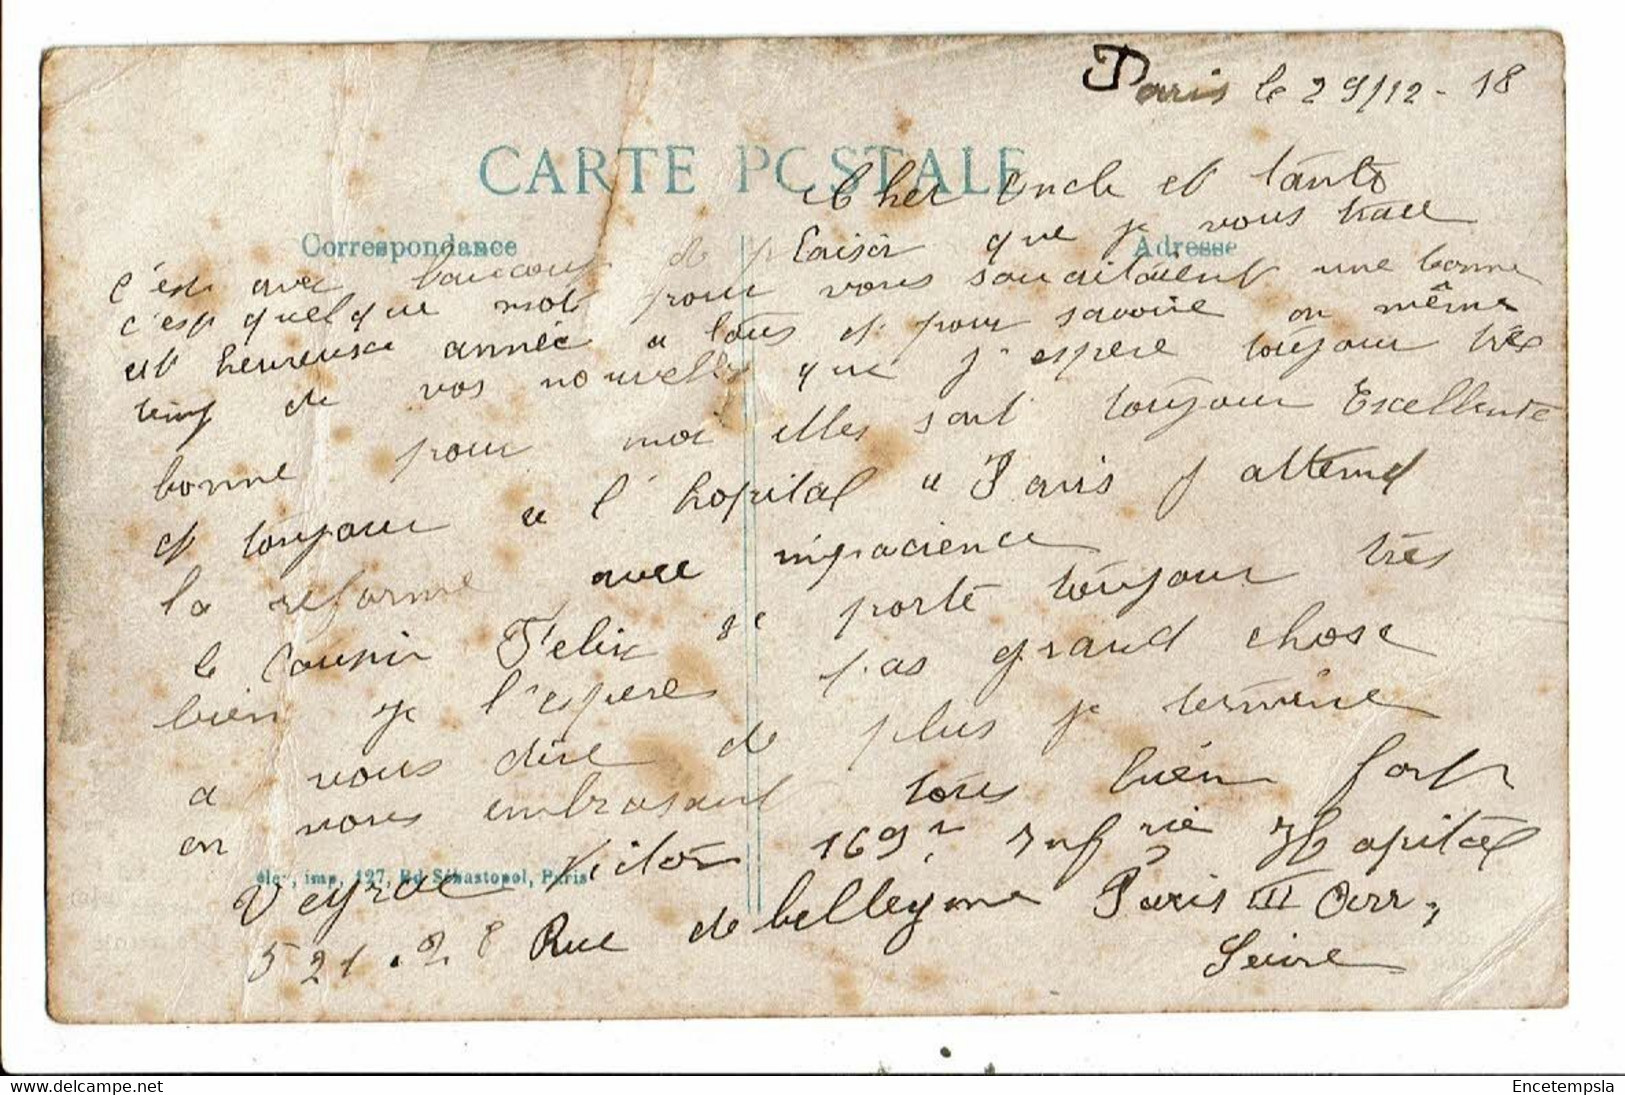 Paris le 29/12 - 18
CARTE POSTALE
Cher Oncle et tante
Correspondance
Adresse
c'est avec baucoup de plaisir que je vous trace
c'est quelque mot pour vous souaitaient une bonne
et heureuse année a tous et pour savoire en même
temp de vos nouvelles que j'espere toujour très
bonne pour moi elles sont toujour Excellente
et toujour a l'hopital a Paris j attend
la reforme avec impacience
le Cousin Felix se porte toujour très
bien je l'espere pas grand chose
a vous dire de plus je termine
en vous embrasant tous bien fort
Veyrac Victor 169e Infrie Hopital
imp. 127, Bd Sébastopol, Paris
521. Rue de belleyme Paris III Arr,
Seine
Encetempsla